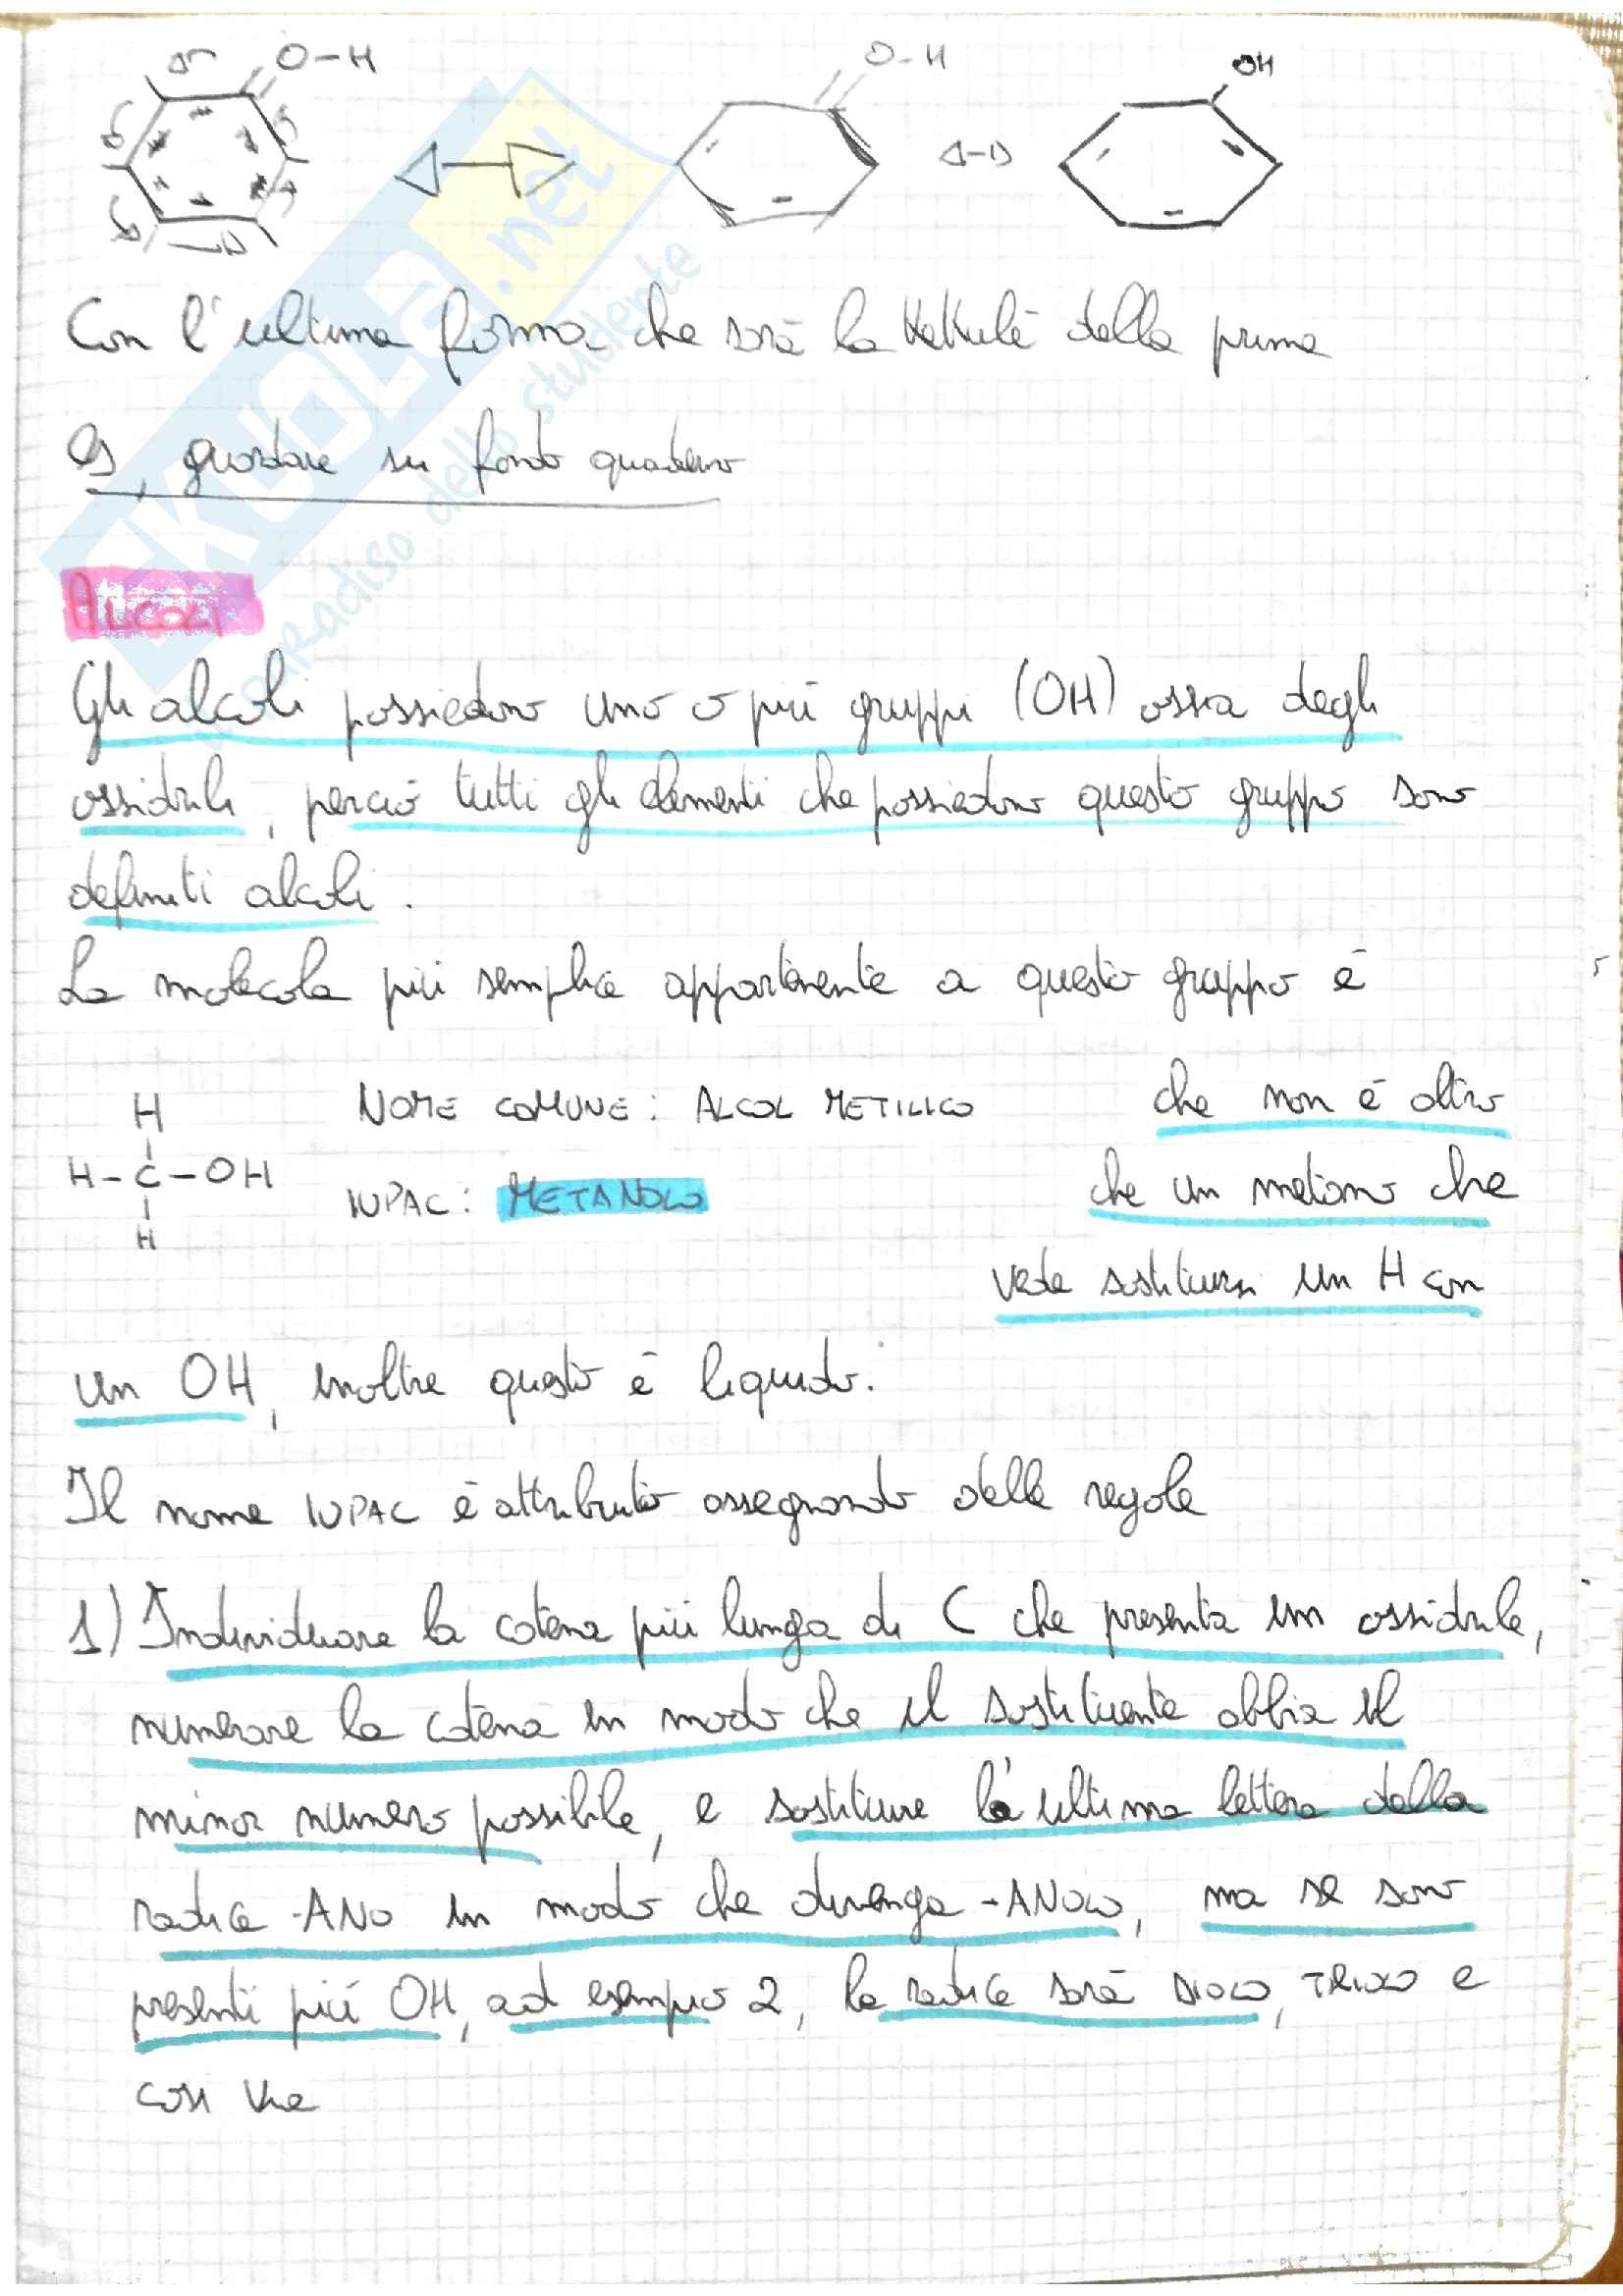 O-H
O-H
OH
Con l'ultima forma che sarà la Kekulè della prima
9, guardare su fondo quaderno
SKUOLA.net
il paradiso dello studente
ALCOLI
Gli alcoli possiedono uno o più gruppi (OH) ossia degli
ossidrili, perciò tutti gli elementi che possiedono questo gruppo sono
definiti alcoli.
La molecola più semplice appartenente a questo gruppo è
H
H-C-OH
H
NOME COMUNE: ALCOL METILICO
IUPAC: METANOLO
che non è altro
che un metano che
vede sostituirsi un H con
un OH, inoltre questo è liquido.
Il nome IUPAC è attribuito assegnando delle regole
1) Individuare la catena più lunga di C che presenta un ossidrile,
numerare la catena in modo che il sostituente abbia il
minor numero possibile, e sostituire l'ultima lettera della
radice -ANO in modo che divenga -ANOLO, ma se sono
presenti più OH, ad esempio 2, la radice sarà DIOLO, TRIOLO e
così via